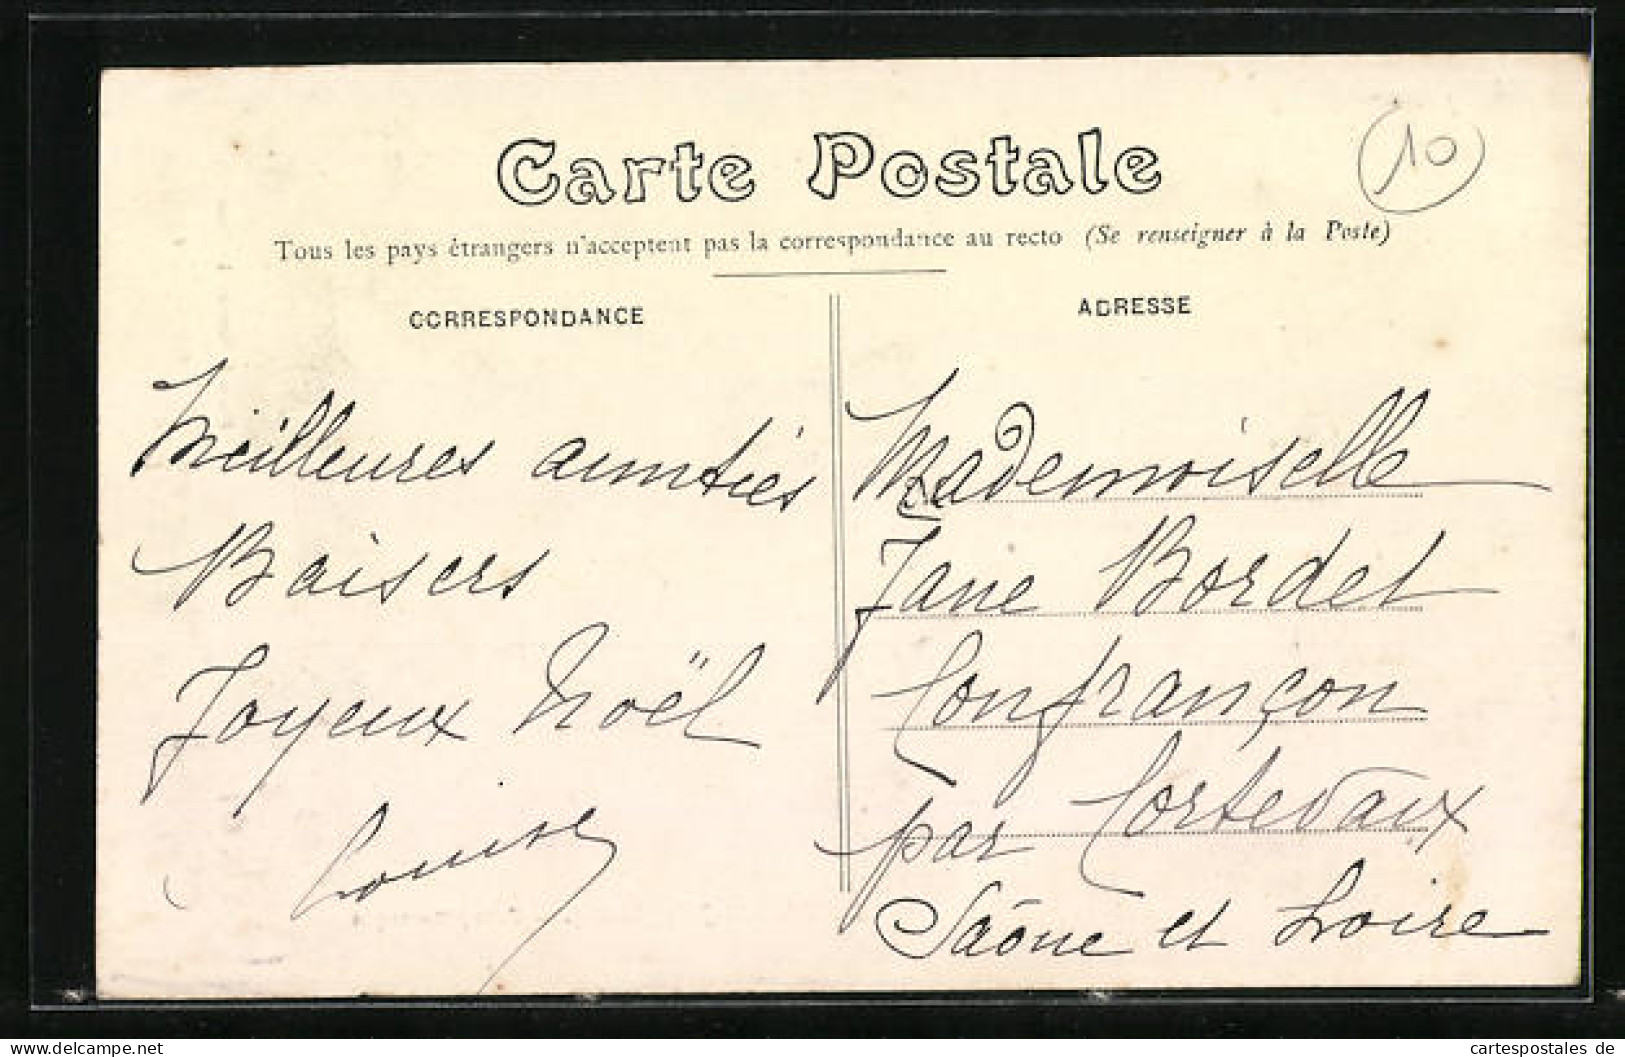 10
Carte Postale
Tous les pays étrangers n'acceptent pas la correspondance au recto (Se renseigner à la Poste)
CORRESPONDANCE
Meilleures amitiés
Baisers
Joyeux Noël
Louise
ADRESSE
Mademoiselle
Jane Bordet
Confrançon
par Cortevaix
Saône et Loire
www.delcampe.net
cartespostales de